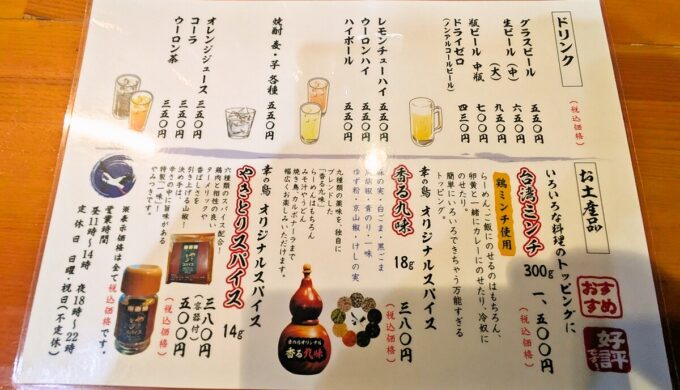 ドリンク
(税込価格)
グラスビール 五五〇円
生ビール (中) 六五〇円
(大) 九五〇円
瓶ビール 中瓶 七〇〇円
ドライゼロ 四三〇円
(ノンアルコールビール)
レモンチューハイ 五五〇円
ウーロンハイ 五五〇円
ハイボール 五五〇円
焼酎 麦・芋 各種 五五〇円
オレンジジュース 三五〇円
コーラ 三五〇円
ウーロン茶 三五〇円
お土産品
おすすめ
好評
いろいろな料理のトッピングに
台湾ミンチ 300g 一、五〇〇円
(税込価格)
鶏ミンチ使用
らーめん、ご飯にのせるのはもちろん、
卵黄と一緒にカレーにのせたり、冷奴に
のせたり。
簡単にいろいろできちゃう万能すぎる
トッピング。
幸の鳥 オリジナルスパイス
香る九味 18g 三八〇円
(税込価格)
味の実・白ごま・黒ごま
青のり・一味
ゆず粉・京山椒・けしの実
九種類の薬味を独自に
ブレンドした
「香る九味」
らーめんはもちろん
みそ汁やうどん
焼き鳥、カルボナーラまで
幅広くお楽しみいただけます。
幸の鳥オリジナル
香る九味
幸の鳥 オリジナルスパイス
やきとりスパイス 14g 三八〇円
(容器付) 五〇〇円
(税込価格)
六種類のスパイス配合!
鶏肉と相性の良い
ターメリックや
香ばしさを
引き上げる山椒が
決め手は、
辛さの中に旨味がある
特製「一味」!
やみつきです。
やきとり
スパイス
※表示価格は全て税込価格です。
営業時間
昼11〜14時 夜18〜22時
定休日 日曜・祝日(不定休)